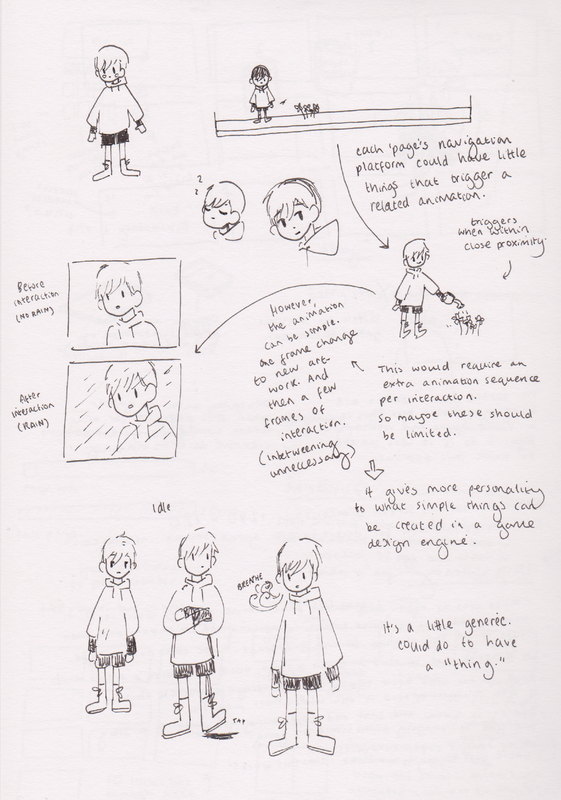 each 'page's navigation
platform could have little
things that trigger a
related animation.
triggers
when within
close proximity.
?
?
Before
interaction
(NO RAIN)
After
interaction
(RAIN)
However,
the animation
can be simple.
one frame change
to new art-
work. And
then a few
frames of
interaction.
(inbetweening
unneccessary)
This would require an
extra animation sequence
per interaction.
so maybe these should
be limited.
it gives more personality
to what simple things can
be created in a game
design engine.
Idle
BREATHE
TAP
It's a little generic.
could do to have
a "thing."